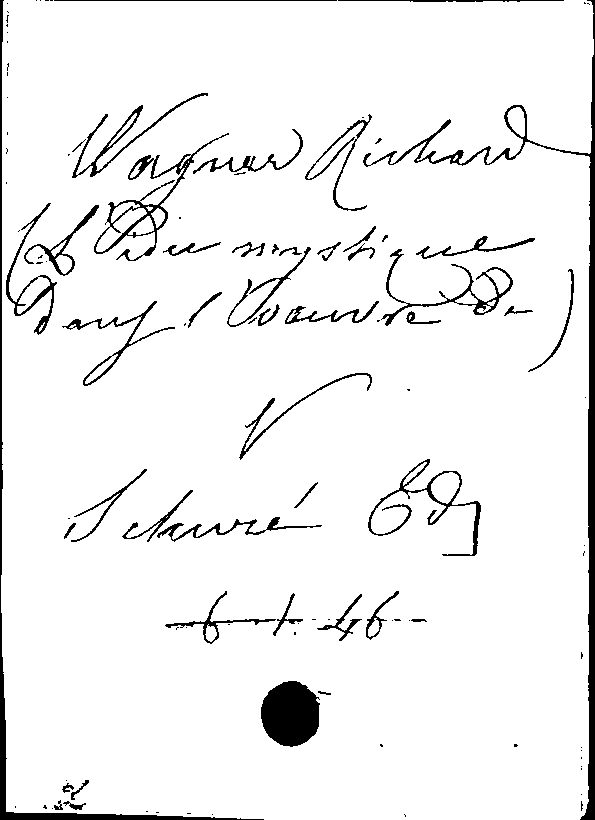 Wagner Richard
(L'idée mystique
dans l'oeuvre de)
V
Schuré Ed
6 1 46